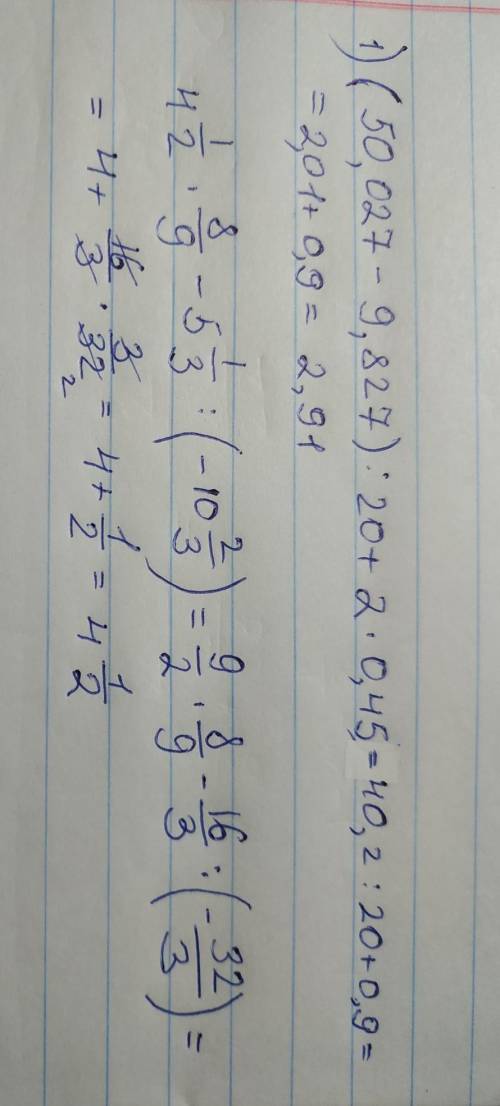 1) (50,027 - 9,827) : 20 + 2 · 0,45 = 40,2 : 20 + 0,9 =
= 2,01 + 0,9 = 2,91
4 1/2 · 8/9 - 5 1/3 : (-10 2/3) = 9/2 · 8/9 - 16/3 : (-32/3) =
= 4 + 16/3 · 3/32 2 = 4 + 1/2 = 4 1/2